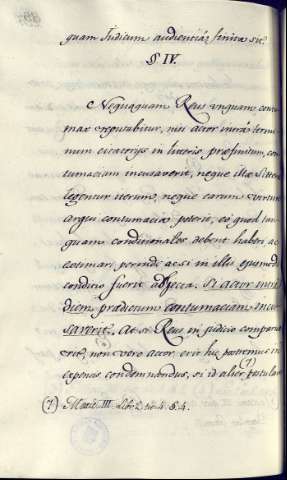 quam Judicum audientiâ finita sit.
§ IV.
Nequaquam Reus unquam contu-
max reputabitur, nisi actor intrà termi-
num citatorijs in literis præfinitum, con-
tumaciam incusaverit, neque illæ litteræ
legentur iterum, neque earum virtute
argui contumacia poterit, eò quod tan-
quam conditionales debent haberi, ac
estimari, perinde ac si in illis ejusmodi
conditio fuerit adjecta. Si actor intra
diem prædictum contumaciam incu-
saverit. At si Reus in judicio comparue-
rit, non vero actor, erit hic postremus in
expensis condemnandus, si id alter (7) postular
(7) Matr. III. Lib. 2. tit. 4. §. 4.